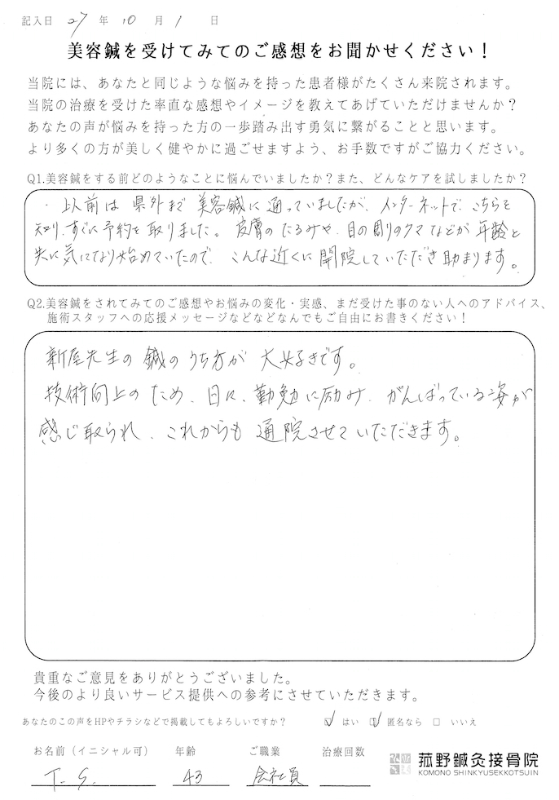 記入日 27 年 10 月 1 日
美容鍼を受けてみてのご感想をお聞かせください！
当院には、あなたと同じような悩みを持った患者様がたくさん来院されます。
当院の治療を受けた率直な感想やイメージを教えてあげていただけませんか？
あなたの声が悩みを持った方の一歩踏み出す勇気に繋がることと思います。
より多くの方が美しく健やかに過ごせますよう、お手数ですがご協力ください。
Q1.美容鍼をする前どのようなことに悩んでいましたか？また、どんなケアを試しましたか？
・以前は 県外まで 美容鍼に通っていましたが、インターネットで、こちらを
知り、すぐに予約を取りました。皮膚のたるみや、目の周りのクマなどが年齢と
共に気になり始めていたので、こんな近くに開院していただき助まります。
Q2.美容鍼をされてみてのご感想やお悩みの変化・実感、まだ受けた事のない人へのアドバイス、
施術スタッフへの応援メッセージなどなどなんでもご自由にお書きください！
新屋先生の鍼のうち方が大好きです。
技術向上のため、日々、勤勉に励み、がんばっている姿が
感じ取られ、これからも通院させていただきます。
貴重なご意見をありがとうございました。
今後のより良いサービス提供への参考にさせていただきます。
あなたのこの声をHPやチラシなどで掲載してもよろしいですか？ ☑ はい ☑ 匿名なら □ いいえ
お名前（イニシャル可） 年齢 ご職業 治療回数
T. S. 43 会社員
菰野鍼灸接骨院
KOMONO SHINKYUSEKKOTSUIN